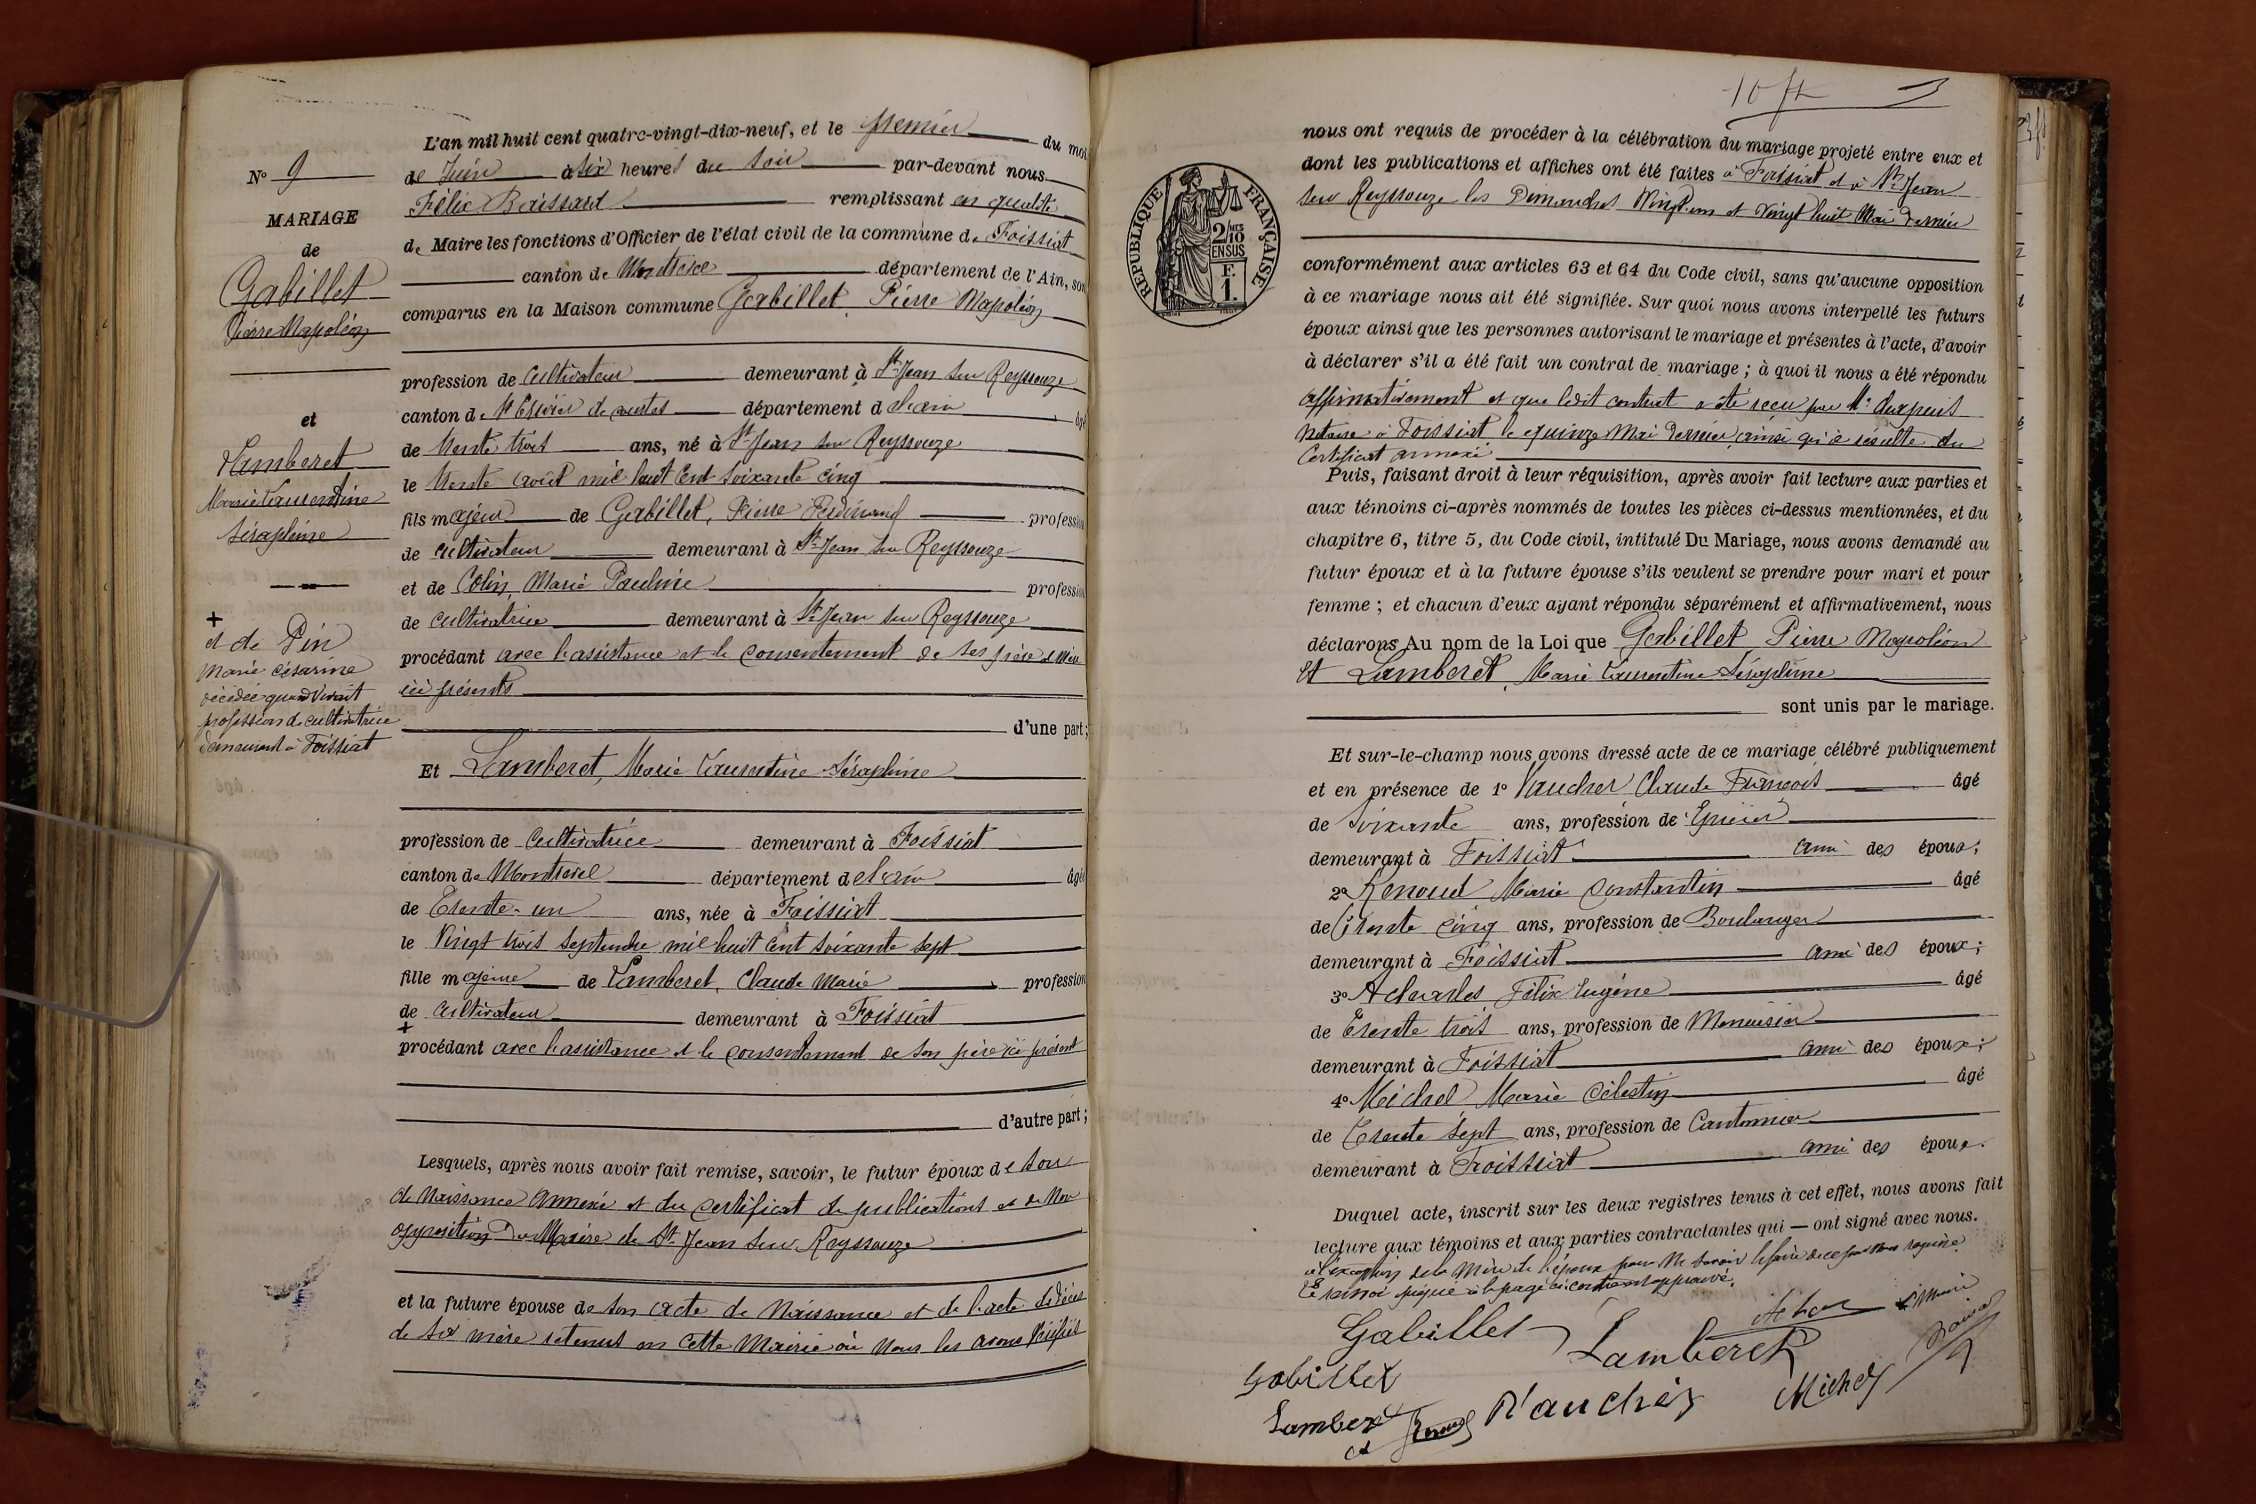 N° 9
MARIAGE
de
Gabillet
Pierre Napoléon
et
Lamberet
Marie Laurentine
Séraphine
+
et de Pin
Marie Césarine
décédée quand vivait
profession de cultivatrice
demeurant à Foissiat
L'an mil huit cent quatre-vingt-dix-neuf, et le premier du moi
de Juin à six heures du soir par-devant nous
Félix Boissard remplissant en qualité
de Maire les fonctions d'Officier de l'état civil de la commune de Foissiat
canton de Montrevel département de l'Ain, son
comparus en la Maison commune Gabillet, Pierre Napoléon
profession de cultivateur demeurant à St Jean sur Reyssouze
canton de département d el'ain âgé
de trente trois ans, né à St Jean sur Reyssouze
le trente août mil huit cent soixante cinq
fils majeur de Gabillet, Pierre Ferdinand profession
de cultivateur demeurant à St Jean sur Reyssouze
et de Colin, Marie Pauline profession
de cultivatrice demeurant à St Jean sur Reyssouze
procédant avec l'assistance et le consentement de ses père et mère
ici présents
d'une part ;
Et Lamberet, Marie Laurentine Séraphine
profession de cultivatrice demeurant à Foissiat
canton de Montrevel département d el'ain âgé
de Trente-un ans, née à Foissiat
le vingt trois septembre mil huit cent soixante sept
fille majeure de Lamberet, Claude Marie profession
de cultivateur demeurant à Foissiat
+
procédant avec l'assistance et le consentement de son père ici présent
d'autre part ;
Lesquels, après nous avoir fait remise, savoir, le futur époux de son
de Naissance annexé et du certificat de publications et de Non
opposition Du Maire de St Jean sur Reyssouze
et la future épouse de son acte de Naissance et de l'acte de décès
de sa mère retenus en cette Mairie où Nous les avons vérifiés
10 ft
RÉPUBLIQUE FRANÇAISE
2/10
EN SUS
F.
1.
nous ont requis de procéder à la célébration du mariage projeté entre eux et
dont les publications et affiches ont été faites à Foissiat et à St Jean
sur Reyssouze les Dimanches Vingt un et vingt huit Mai dernier
conformément aux articles 63 et 64 du Code civil, sans qu'aucune opposition
à ce mariage nous ait été signifiée. Sur quoi nous avons interpellé les futurs
époux ainsi que les personnes autorisant le mariage et présentes à l'acte, d'avoir
à déclarer s'il a été fait un contrat de mariage ; à quoi il nous a été répondu
affirmativement et que ledit contrat a été reçu par Me
Notaire à Foissiat le quinze Mai dernier ainsi qu'il résulte du
Certificat annexé
Puis, faisant droit à leur réquisition, après avoir fait lecture aux parties et
aux témoins ci-après nommés de toutes les pièces ci-dessus mentionnées, et du
chapitre 6, titre 5, du Code civil, intitulé Du Mariage, nous avons demandé au
futur époux et à la future épouse s'ils veulent se prendre pour mari et pour
femme ; et chacun d'eux ayant répondu séparément et affirmativement, nous
déclarons Au nom de la Loi que Gabillet Pierre Napoléon
Et Lamberet, Marie Laurentine Séraphine
sont unis par le mariage.
Et sur-le-champ nous avons dressé acte de ce mariage célébré publiquement
et en présence de 1° Vaucher Claude François âgé
de Soixante ans, profession de Epicier
demeurant à Foissiat ami des époux ;
2° Renoud Marie Constantin âgé
de Trente cinq ans, profession de Boulanger
demeurant à Foissiat ami des époux ;
3° Achardes Félix Eugène âgé
de Trente trois ans, profession de Menuisier
demeurant à Foissiat ami des époux ;
4° Michel Marie Célestin âgé
de Trente sept ans, profession de Cantonnier
demeurant à Foissiat ami des époux.
Duquel acte, inscrit sur les deux registres tenus à cet effet, nous avons fait
lecture aux témoins et aux parties contractantes qui — ont signé avec nous.
à l'exception de la Mère de l'époux pour Ne savoir le faire de ce par Nous requise
Le renvoi figuré à la page ci-contre est approuvé.
Gabillet
Lamberet
Le Maire
Boissard
Gabillet
Lamberet
Renoud
Vaucher
Michel